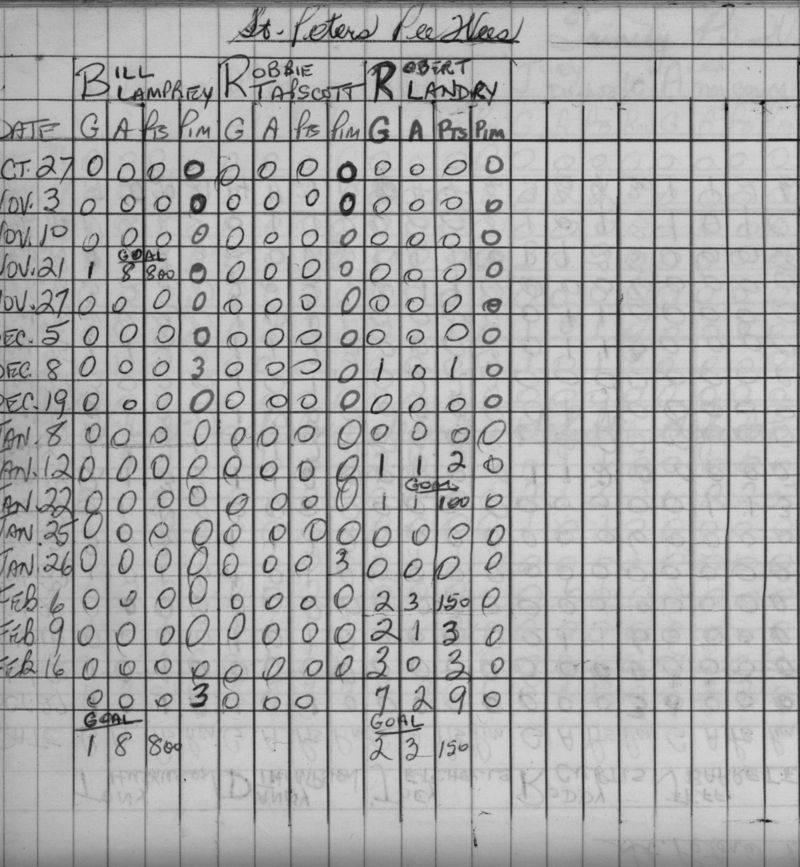 St. Peters Pee Wees
BILL LAMPREY ROBBIE TAPSCOTT ROBERT LANDRY
DATE G A Pts Pim G A Pts Pim G A Pts Pim
CT. 27 0 0 0 0 0 0 0 0 0 0 0 0
NOV. 3 0 0 0 0 0 0 0 0 0 0 0 0
NOV. 10 0 0 0 0 0 0 0 0 0 0 0 0
GOAL
NOV. 21 1 8 800 0 0 0 0 0 0 0 0 0
NOV. 27 0 0 0 0 0 0 0 0 0 0 0 0
DEC. 5 0 0 0 0 0 0 0 0 0 0 0 0
DEC. 8 0 0 0 3 0 0 0 0 1 0 1 0
DEC. 19 0 0 0 0 0 0 0 0 0 0 0 0
JAN. 8 0 0 0 0 0 0 0 0 0 0 0 0
JAN. 12 0 0 0 0 0 0 0 0 1 1 2 0
GOAL
JAN. 22 0 0 0 0 0 0 0 0 1 1 100 0
JAN. 25 0 0 0 0 0 0 0 0 0 0 0 0
JAN. 26 0 0 0 0 0 0 0 3 0 0 0 0
FEB. 6 0 0 0 0 0 0 0 0 2 3 150 0
FEB 9 0 0 0 0 0 0 0 0 2 1 3 0
FEB 16 0 0 0 0 0 0 0 0 3 0 3 0
0 0 0 3 0 0 0 7 2 9 0
GOAL GOAL
1 8 800 2 3 150